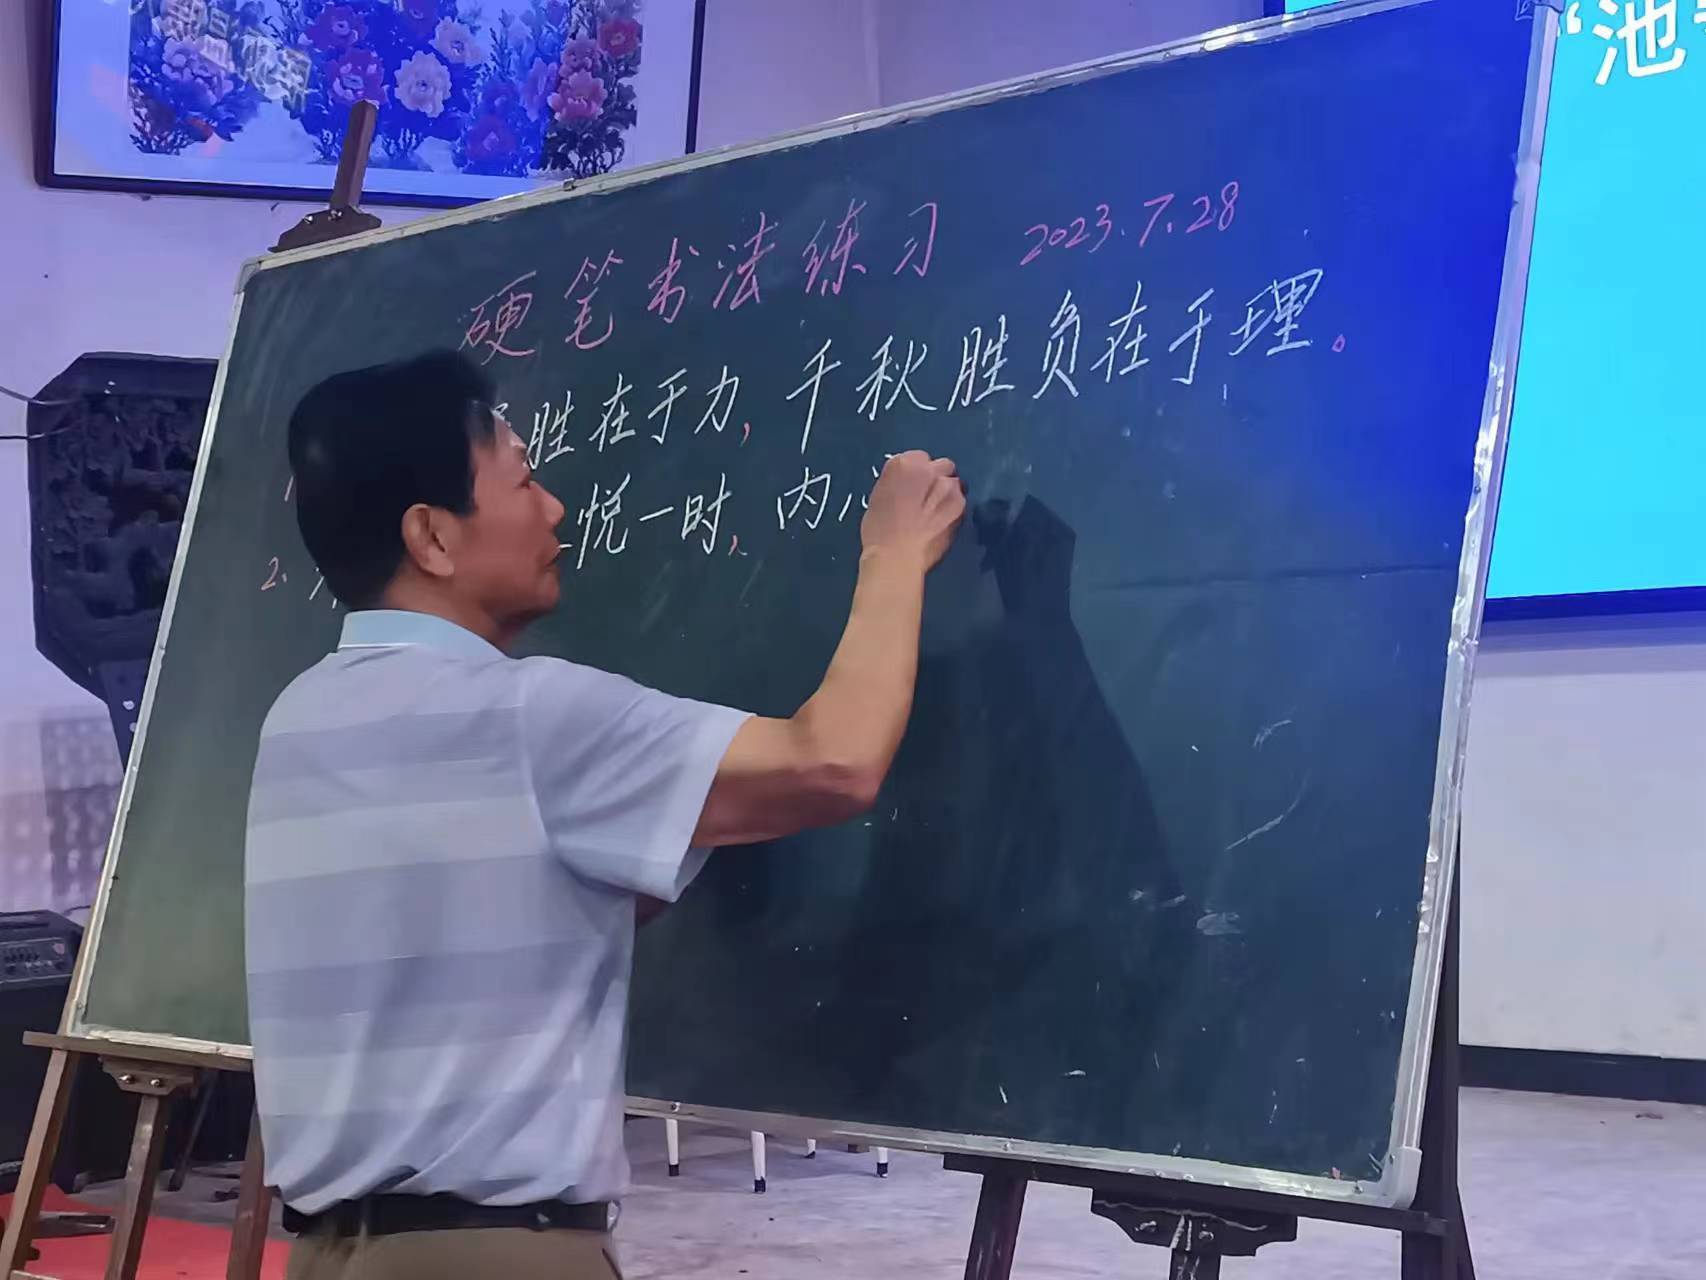 硬笔书法练习 2023.7.28
胜在于力,千秋胜负在于理。
2. 悦一时,内心
“池